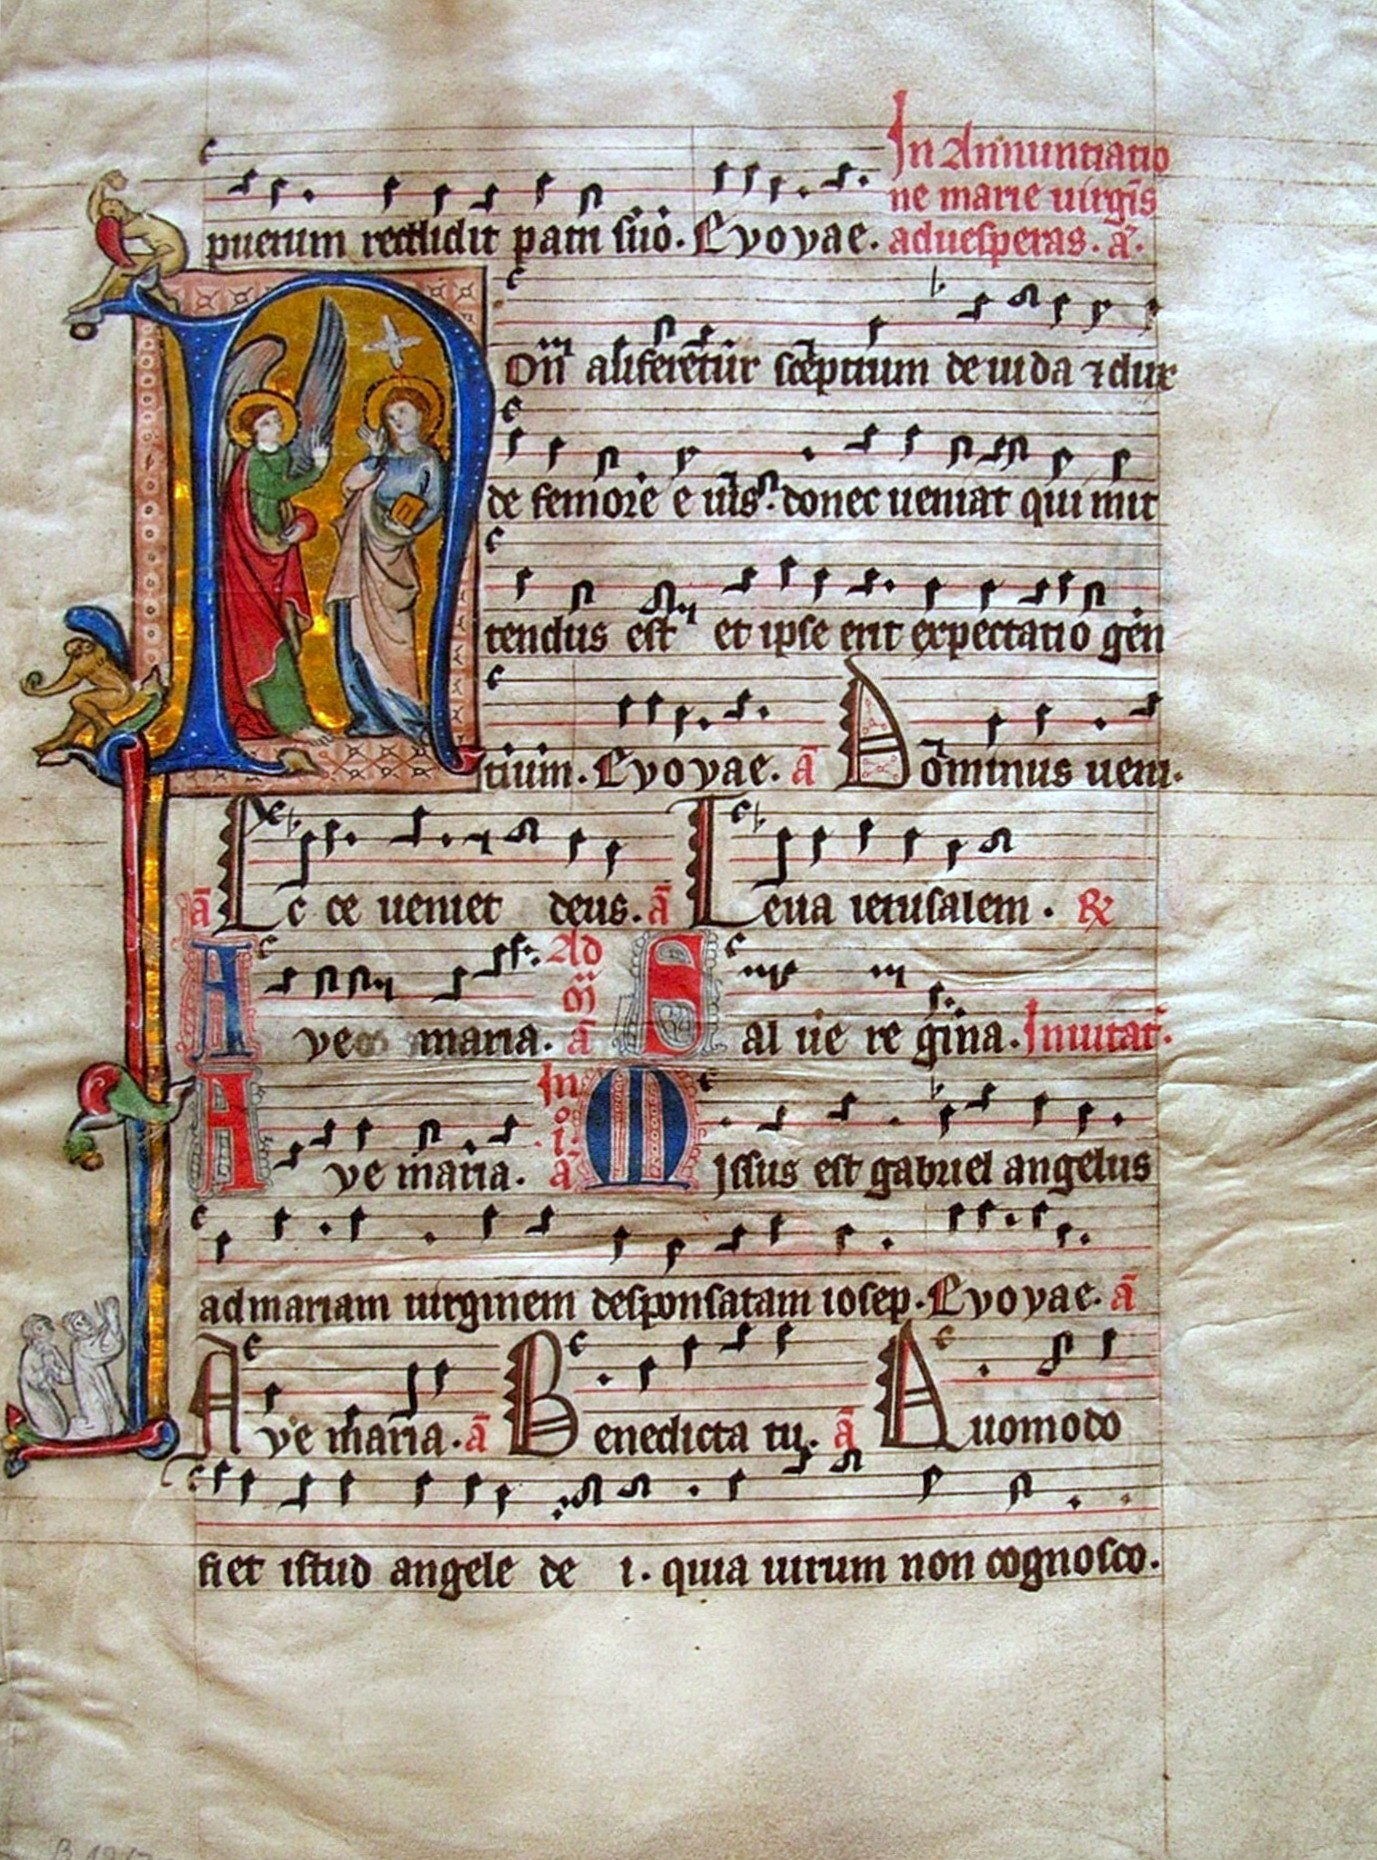 In Annuntiatio
puerum reddidit patri suo. Evovae. ne marie uirgis
aduesperas. a.
Non auferetur sceptrum de iuda ⁊ dux
de femore eius. donec ueniat qui mit
tendus est et ipse erit expectatio gen
tium. Evovae. a Dominus ueni.
a Ecce ueniet deus. a Leua ierusalem. ℟
Ave maria. Ad m a Salue regina. Inuitat.
Ave maria. In i a Missus est gabriel angelus
ad mariam uirginem desponsatam iosep. Evovae. a
Ave maria. a Benedicta tu. a Quomodo
fiet istud angele dei. quia uirum non cognosco.